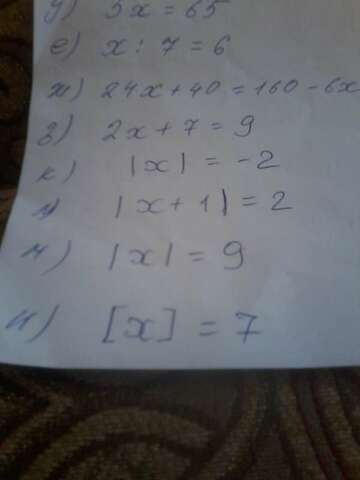 у) 5x = 65
е) x : 7 = 6
ж) 24x + 40 = 160 - 6x
з) 2x + 7 = 9
к) |x| = -2
л) |x + 1| = 2
м) |x| = 9
н) [x] = 7